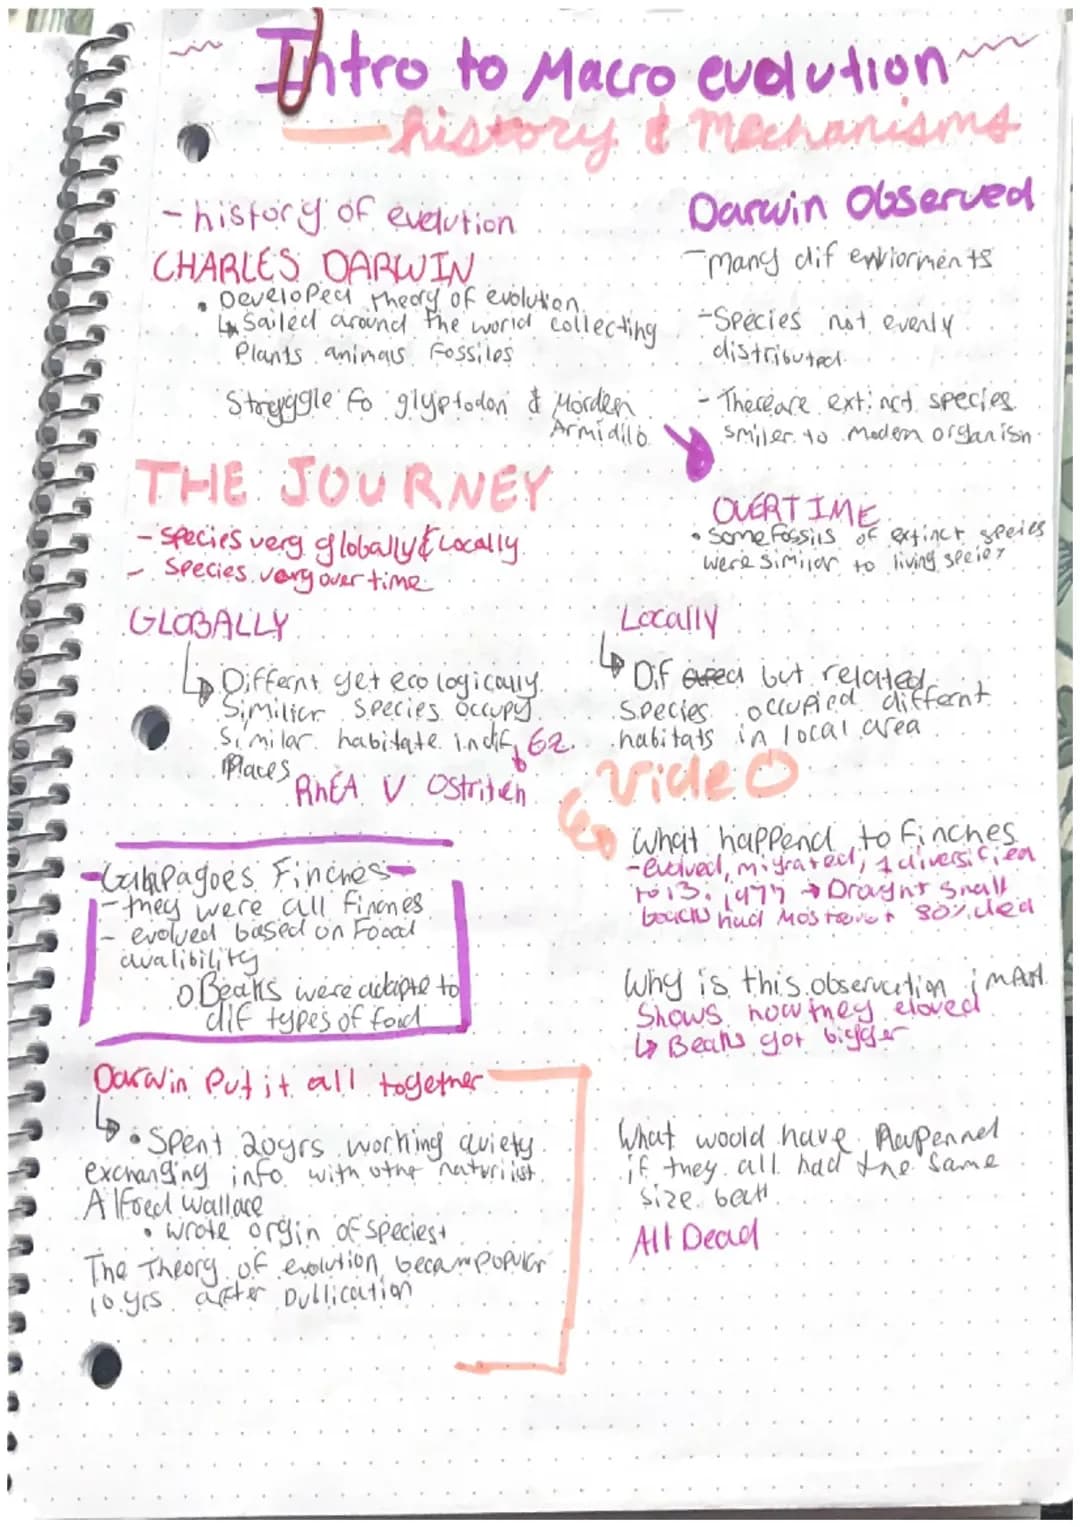 Intro to Macro evolution
history & Mechanisms
- history of evelution
CHARLES DARWIN
• Developed theory of evolution
↳ Sailed around the world collecting
Plants animals Fossiles
glyptodon & Morden
Armidilo
Darwin Observed
- many dif enviorments
- Species not evenly
distributed
- There are extinct species
smiler to modern organism
THE JOURNEY
- Species very globally & Locally
- Species vary over time
OVERTIME
• Some fossils of extinct species
were similar to living speies
GLOBALLY
↳ Differnt yet ecologically
Similier species occupy
similar habitate in dif, Ez.
Places
RhEA V Ostritch
Locally
↳ Dif but related
species occupied differnt
habitats in local area
Video
What happend to Finches
- evolved, migrated, & diversified
to 13. 1977 → Draght small
beacks had most 80% died
Why is this observation
Shows how they eloved
↳ Beaks got bigger
What woould have Happenned
if they all had the same
size beak
All Dead
- Galapagoes Finches -
- they were all finches
- evolved based on Food
avalibility
o Beaks were adapte to
dif types of food
Darwin Put it all together
↳ • Spent 20yrs working quiety
exchanging info with othr naturilist
Alfred Wallace
• Wrote orgin of Species
The Theory of evolution becam popular
10 yrs after Publication